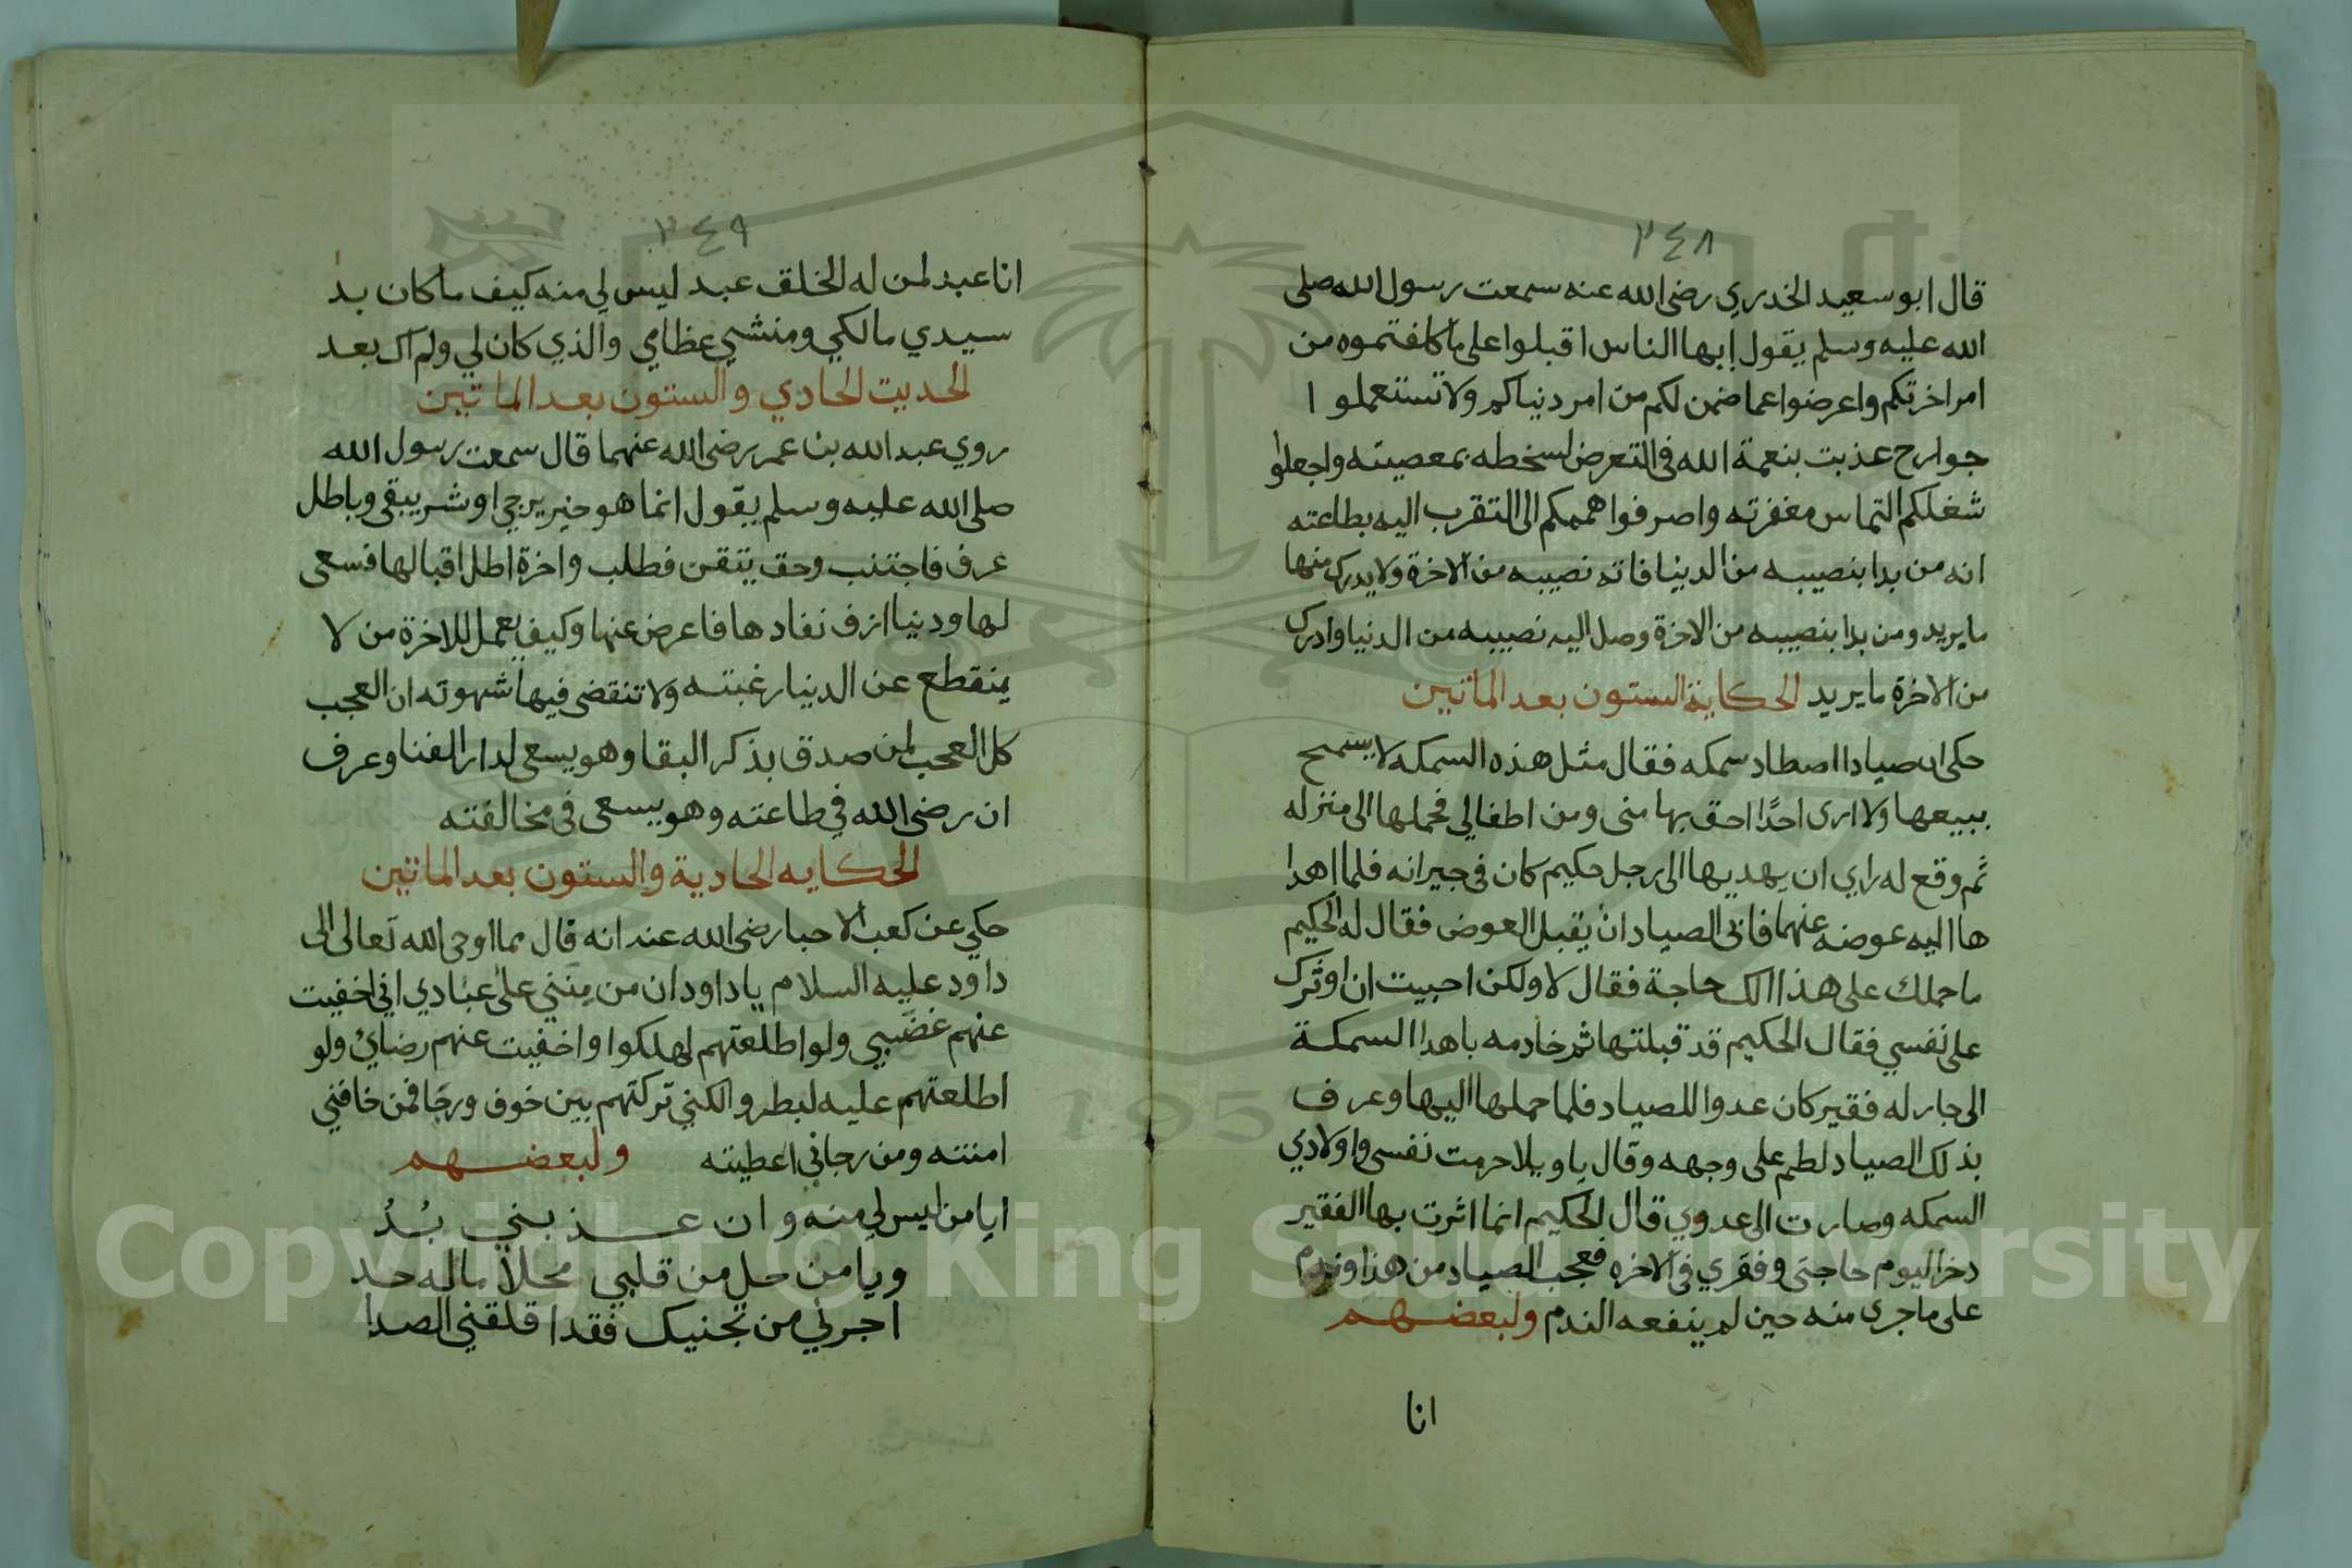 ٢٤٨
قال ابو سعيد الخدري رضى الله عنه سمعت رسول الله صلى
الله عليه وسلم يقول ايها الناس اقبلوا على ما كلفتموه من
امر اخرتكم واعرضوا عما ضمن لكم من امر دنياكم ولا تستعملوا ا
جوارح عذبت بنعمة الله فى التعرض لسخطه بمعصيته واجعلوا
شغلكم التماس مغفرته واصرفوا هممكم الى التقرب اليه بطاعته
انه من بدا بنصيبه من الدنيا فاته نصيبه من الاخرة ولا يدرك منها
ما يريد ومن بدا بنصيبه من الاخرة وصل اليه نصيبه من الدنيا وادرك
من الاخرة ما يريد الحكاية الستون بعد الماتين
حكى ان صيادا اصطاد سمكه فقال مثل هذه السمكه لا يسمح
ببيعها ولا ارى احدًا احق بها منى ومن اطفالي فحملها الى منزله
ثم وقع له راي ان يهديها الى رجل حكيم كان فى جيرانه فلما اهدا
ها اليه عوضه عنهما فابى الصياد ان يقبل العوض فقال له الحكيم
ما حملك على هذا الك حاجة فقال لا ولكن احببت ان اوثرك
على نفسي فقال الحكيم قد قبلتها ثم خادمه باهدا السمكة
الى جار له فقير كان عدوا للصياد فلما حملها اليها وعرف
بذلك الصياد لطم على وجهه وقال يا ويلا حرمت نفسى واولادي
السمكه وصارت الى عدوي قال الحكيم انما اثرت بها الفقير
دخر اليوم حاجتى وفقري فى الاخره فعجب الصياد من هذا وندم
على ما جرى منه حين لم ينفعه الندم ولبعضهم
انا
٢٤٩
انا عبد لمن له الخلق عبد ليس لي منه كيف ما كان بد
سيدي مالكي ومنشي عظامي والذي كان لي ولم اك بعد
الحديت الحادي والستون بعد الماتين
روي عبد الله بن عمر رضى الله عنهما قال سمعت رسول الله
صلى الله عليه وسلم يقول انما هو خير يرجى او شر يبقى وباطل
عرف فاجتنب وحق يتقن فطلب واخرة اطل اقبالها فسعى
لها ودنيا ازف نفادها فاعرض عنها وكيف يعمل للاخرة من لا
ينقطع عن الدنيا رغبته ولا تنقضى فيها شهوته ان العجب
كل العجب لمن صدق بذكر البقا وهو يسعى لدار الفنا وعرف
ان رضى الله في طاعته وهو يسعى فى مخالفته
الحكايه الحادية والستون بعد الماتين
حكي عن كعب الاحبار رضى الله عنه انه قال مما اوحى الله تعالى الى
داود عليه السلام يا داود ان من منني على عبادي اني اخفيت
عنهم غضبي ولو اطلعتهم لهلكوا واخفيت عنهم رضاي ولو
اطلعتهم عليه لبطروا لكني تركتهم بين خوف ورجا فمن خافني
امنته ومن رجاني اعطيته ولبعضهم
ايا من ليس لي منه وان عذبني بُدُ
ويا من حل من قلبي محلا ماله حد
اجرني من تجنيك فقد اقلقني الصدا